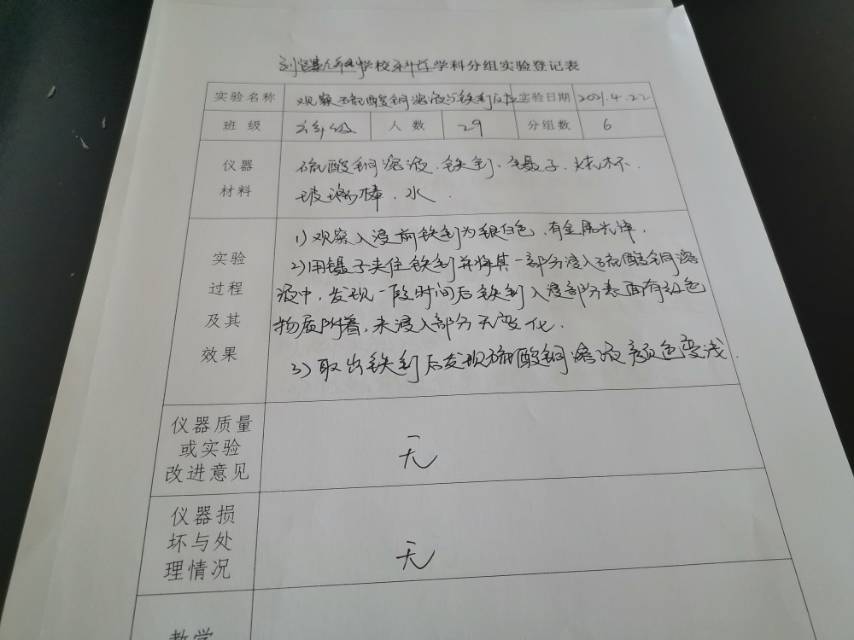 学校科学学科分组实验登记表
实验名称 观察硫酸铜溶液与铁钉反应 实验日期 2021.4.22
班级 六年级 人数 29 分组数 6
仪器 硫酸铜溶液、铁钉、镊子、烧杯、
材料 玻璃棒、水
1)观察入浸前铁钉为银白色,有金属光泽.
实验 2)用镊子夹住铁钉并将其一部分浸入硫酸铜溶
过程 液中,发现一段时间后铁钉入浸部分表面有红色
及其 物质附着,未浸入部分无变化.
效果 3)取出铁钉后发现硫酸铜溶液颜色变浅.
仪器质量
或实验 无
改进意见
仪器损
坏与处 无
理情况
教学